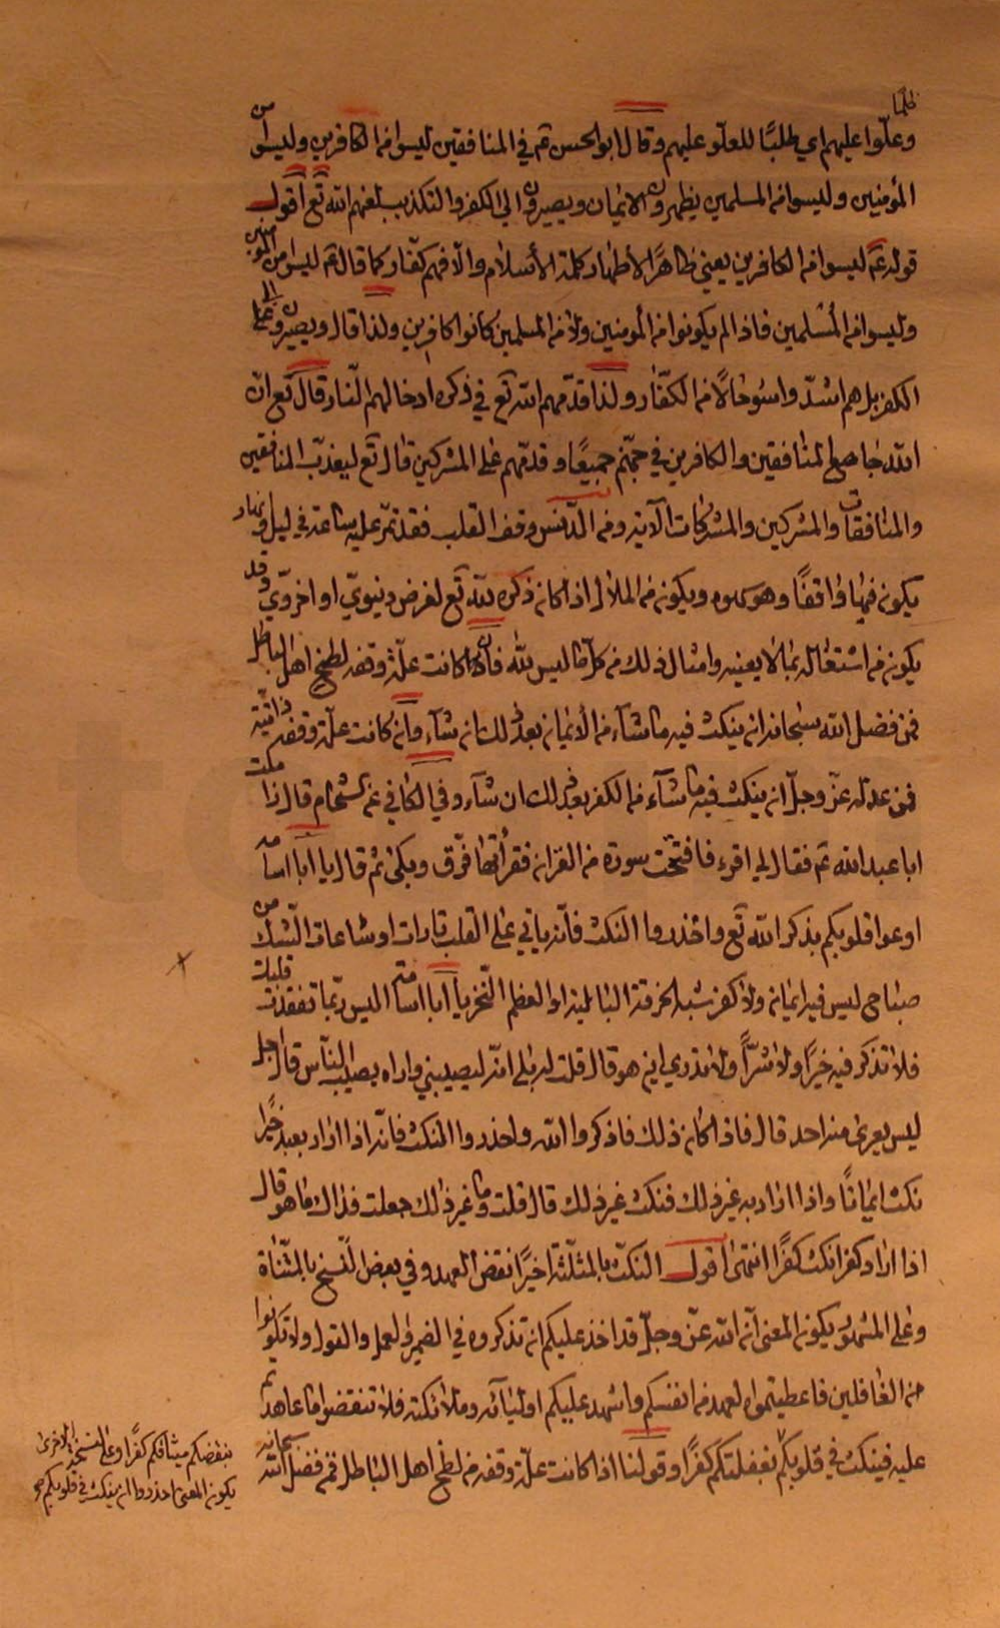 ظلما
وعلّوا عليهم اي طلبًا للعلّو عليهم وقال ابو الحسن ع في المنافقين ليسوا من الكافرين وليسوا من
المؤمنين وليسوا من المسلمين يظهرون الايمان ويصيرون الى الكفر والتكذيب لعنهم الله تع اقول
قوله ع ليسوا من الكافرين يعني ظاهرًا لاظهار كلمة الاسلام والّا فهم كفّار كما قال ع ليسوا من المؤمنين
وليسوا من المسلمين فاذا لم يكونوا من المؤمنين ولا من المسلمين كانوا كافرين ولذا قال ويصيرون الى
الكفر بل هم اشدّ واسوء حالًا من الكفّار ولذا قدّمهم الله تع في ذكره ادخالهم النّار قال تع انّ
الله جامع المنافقين والكافرين في جهنّم جميعًا وقدّمهم على المشركين قال تع ليعذّب المنافقين
والمنافقات والمشركين والمشركات الآية ومن الدّنس وقف القلب فقد تمرّ عليه ساعة في ليل ونهار
يكون فيها واقفًا وهو سهوه ويكون من الملال اذا كان ذكره لله تع لغرض دنيويّ او اخرويّ وقد
يكون من اشتغاله بما لا يعنيه وامثال ذلك من كلّ ما ليس لله فان كانت علّة وقفه لطخ اهل الباطل
فمن فضل الله سبحانه ان ينكت فيه ما شاء من الايمان بعد ذلك ان شآء وان كانت علّة وقفه ذاتيّة
فمن عدله عزّ وجلّ ان ينكت فيه ما شآء من الكفر بعد ذلك ان شآء وفي الكافي عن الشحام قال زاملت
ابا عبد الله ع فقال لي اقرء فافتتحت سورة من القرآن فقرأتها فرّق وبكى ثم قال يا ابا اسامه
اوعوا قلوبكم بذكر الله تع واحذروا النكث فانّه ياتي على القلب تارات او ساعات الشك من
صباح ليس فيه ايمان ولا كفر شبه الخرقة البالية او العظم النّخر يا ابا اسامة اليس ربّما تفقدت قلبك
فلا تذكر فيه خيرًا ولا شرّاً ولا تدري اين هو قال قلت له بلى انّه ليصيبني واراه يصيب النّاس قال اجل
ليس يعرى منه احد قال فاذا كان ذلك فاذكروا الله واحذروا النكث فانّه اذا اراد بعبد خيرًا
نكت ايمانًا واذا اراد به غير ذلك فنكت غير ذلك قال قلت وما غير ذلك جعلت فداك ما هو قال
اذا اراد كفرا نكت كفرًا انتهى اقول النكث بالمثلّثة اخيرًا نقض العهد وفي بعض النّسخ بالمثنّاة
وعلى المشهور يكون المعنى انّ الله عزّ وجلّ قد اخذ عليكم ان تذكروه في الضمير والعمل والقول ولا تكونوا
من الغافلين فاعطيتموه العهد من انفسكم واشهد عليكم اوليآئه وملائكته فلا تنقضوا ما عاهدتم
عليه فينكت في قلوبكم بغفلتكم كفرًا وقولنا اذا كانت علّة وقفه من لطخ اهل الباطل فمن فضل الله سبحانه
بنقضكم ميثاقكم كفرًا وعلى النسخة الاخرى
يكون المعنى احذروا ان ينكت في قلوبكم صح